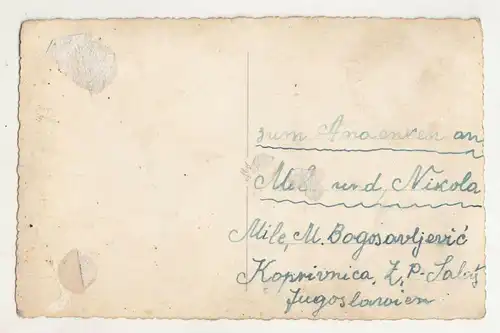 zum Andenken an
und Nikola
Mile, M. Bogosavljević
Koprivnica, Z, P-
Jugoslawien